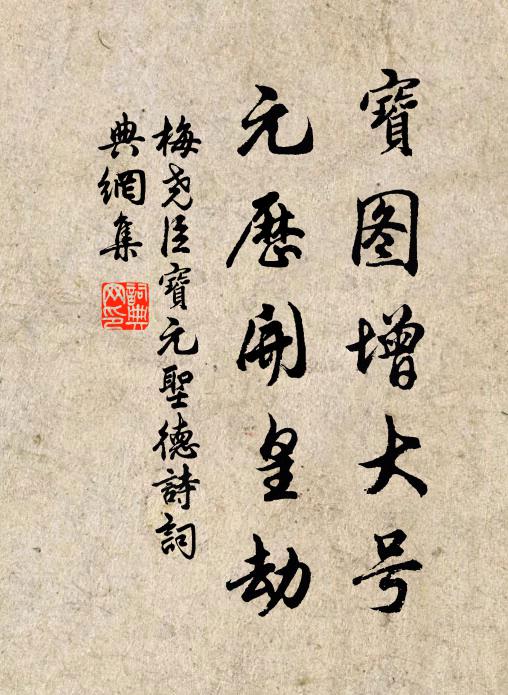 寶图增大号
元歷開皇劫
梅尧臣寶元聖德詩詞
典網集
詞典网印